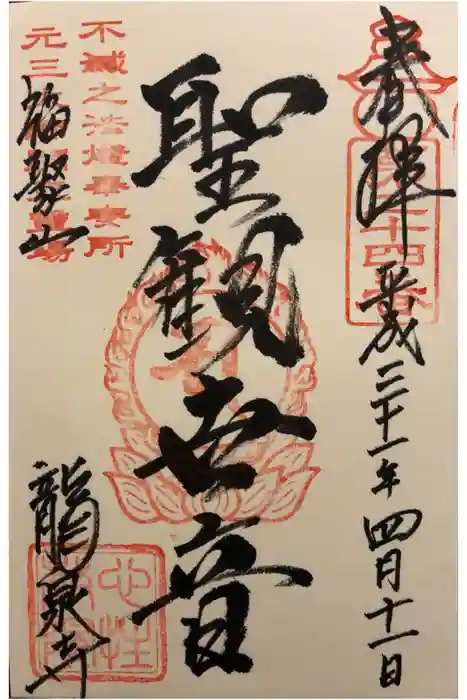 奉拝
平成三十一年四月十一日
聖観世音
不滅之法燈奉安所
元三
福聚山
龍泉寺